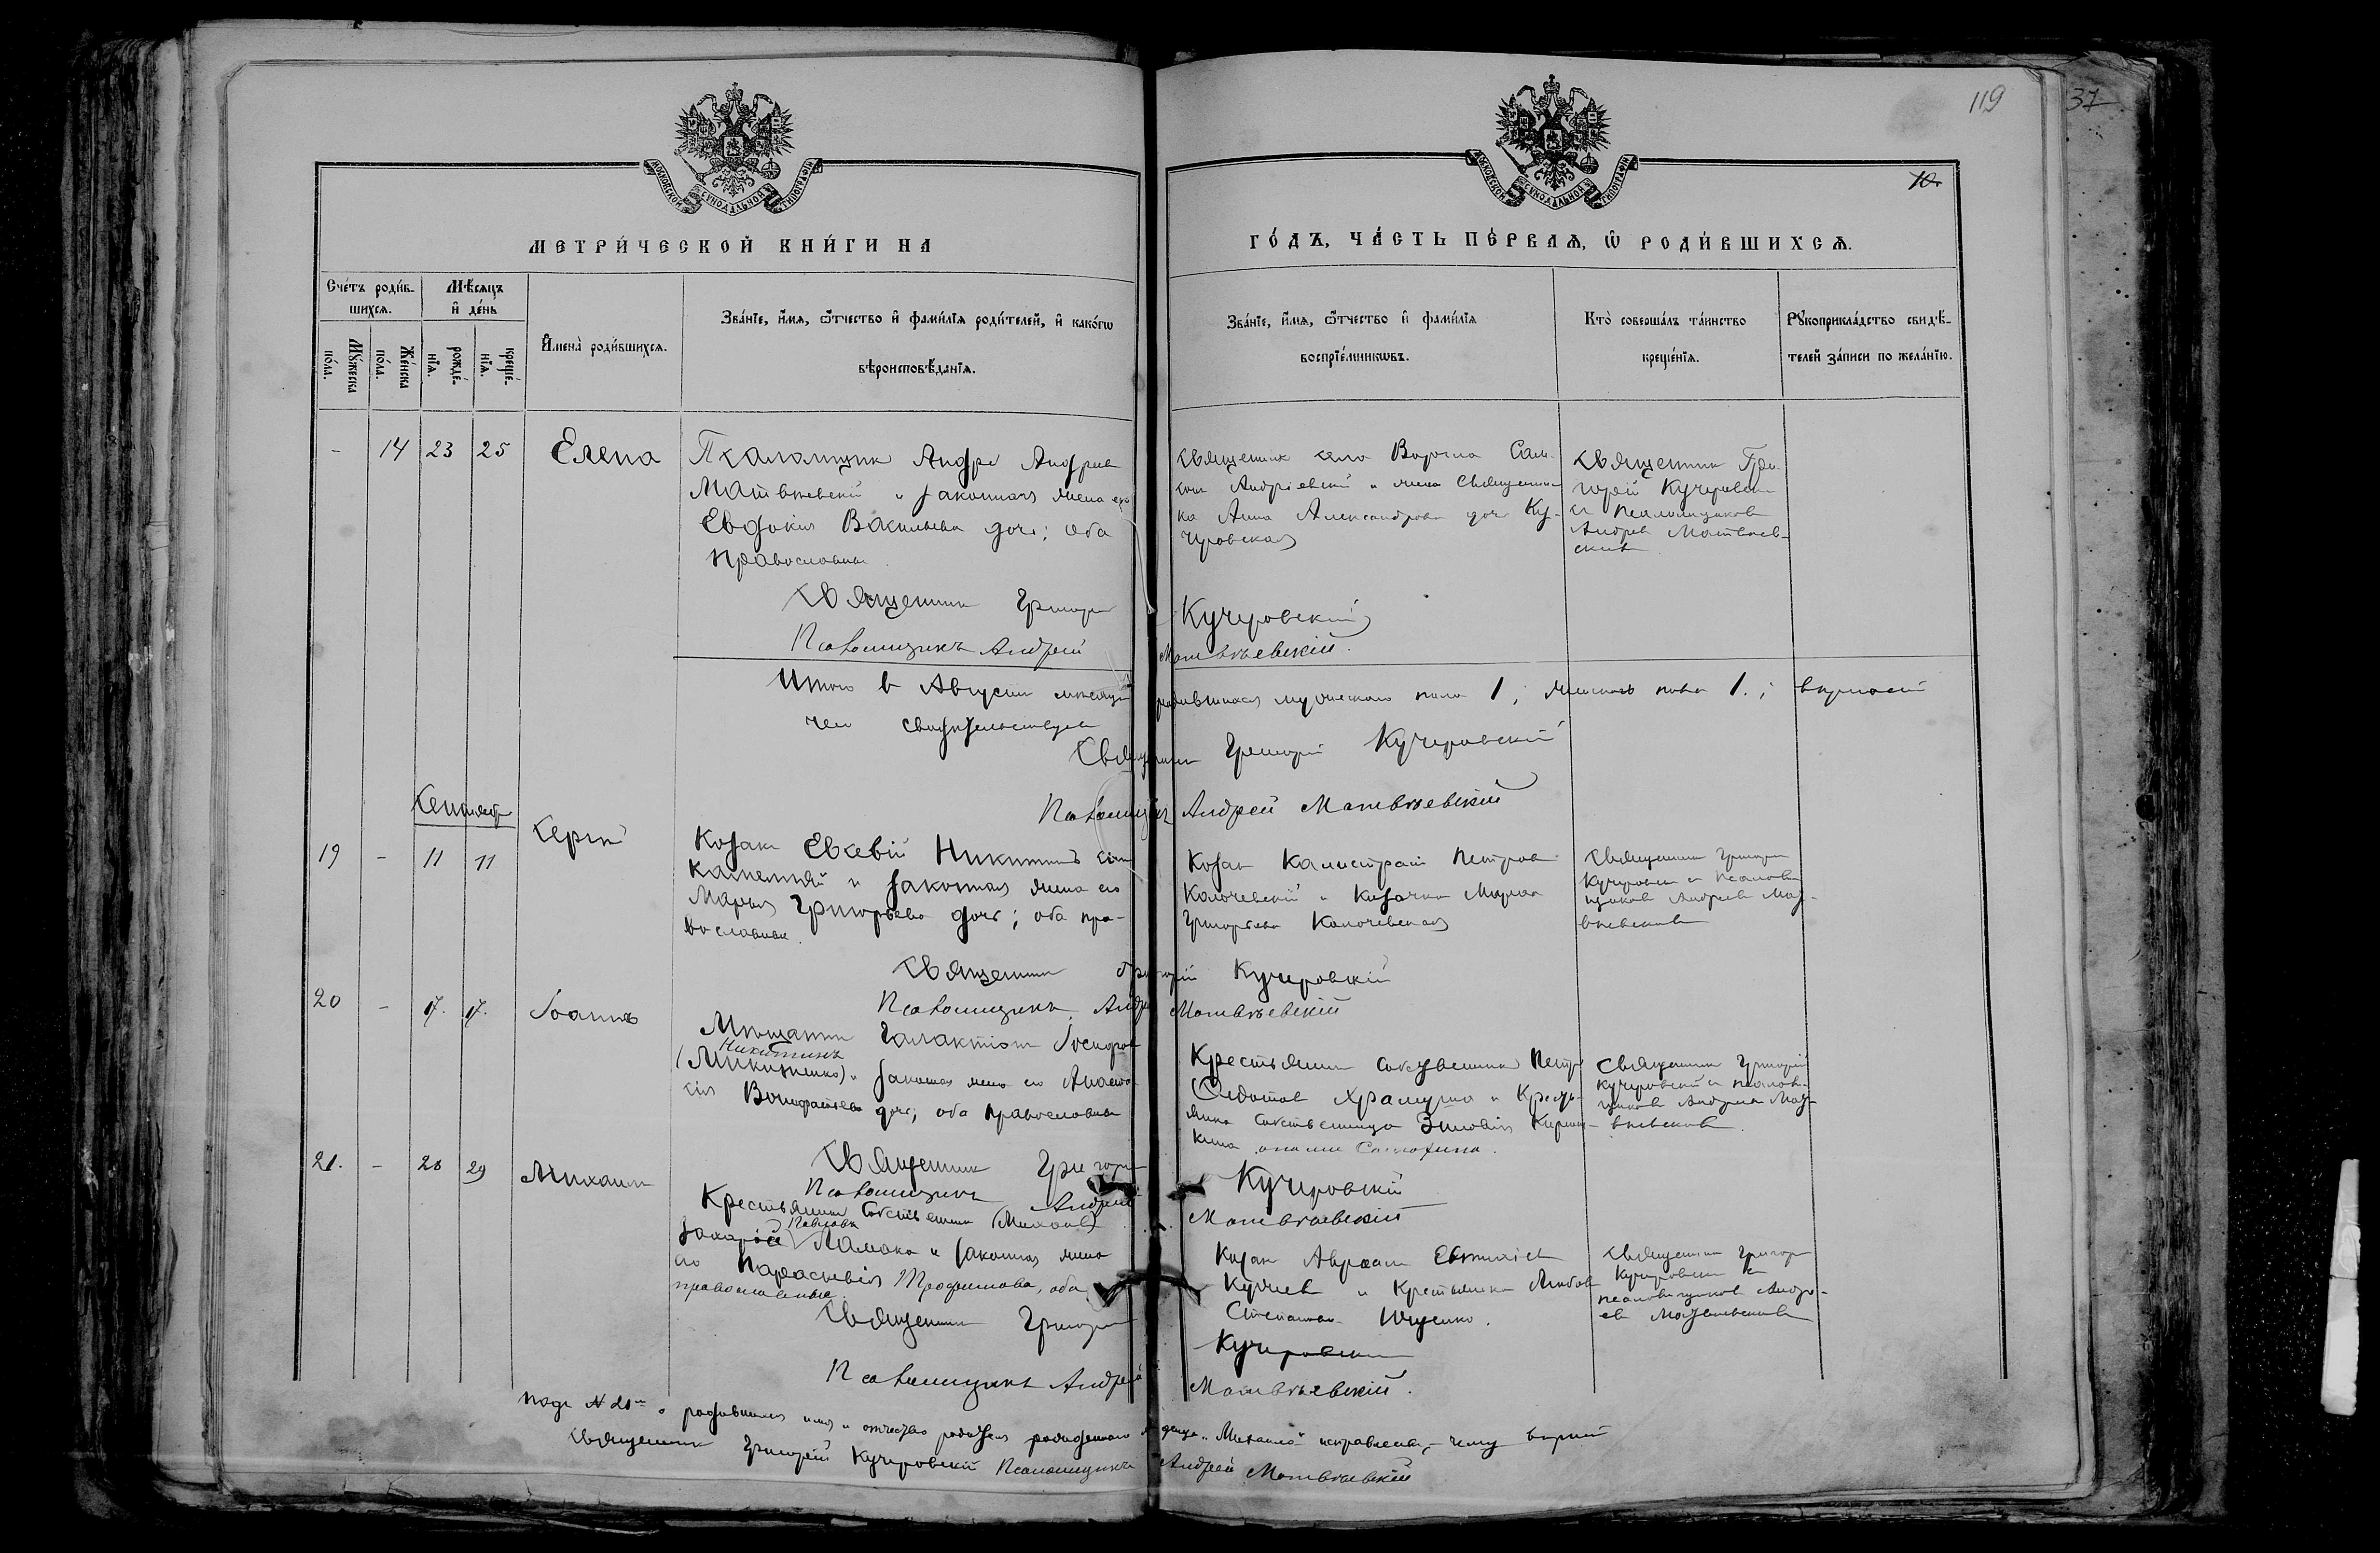 119
37
10.
МОСКОВСКОЙ СѴНОДАЛЬНОЙ ТИПОГРАФІИ
МОСКОВСКОЙ СѴНОДАЛЬНОЙ ТИПОГРАФІИ
МЕТРИ́ЧЕСКОЙ КНИ́ГИ НА
ГО́ДЪ, ЧА́СТЬ ПЕ́РВАѦ, Ѡ҆ РОДИ́ВШИХСѦ.
Сче́тъ роди́в-
шихсѧ.
Мѣ́сѧцъ
и҆ де́нь
Мꙋ́жеска
по́ла.
Же́нска
по́ла.
рожде́-
нїѧ.
креще́-
нїѧ.
И҆мена̀ роди́вшихсѧ.
Зва́нїе, и҆́мѧ, ѻ҆́тчество и҆ фами́лїѧ роди́телей, и҆ како́гѡ
вѣроисповѣ́данїѧ.
Зва́нїе, и҆́мѧ, ѻ҆́тчество и҆ фами́лїѧ
воспрїе́мникѡвъ.
Кто̀ соверша́лъ та́инство
креще́нїѧ.
Рꙋкоприкла́дство свидѣ́-
телей за́писи по жела́нїю.
- 14 23 25 Елена
Псаломщик Андре Андреев
Матвѣевскій и законная жена его
Евдокия Васильева дочь; оба
православные
Священник села Сам-
сон Андріевскій и жена священни-
ка Анна Александрова дочь Ку-
черовская
Священник Гри-
горій Кучеровскій
с псаломщиком
Андреем Матвѣев-
ским
Священник Григорій Кучеровскій
Псаломщикъ Андрей Матвѣевскій.
Итого в Августе месяце родившихся мужеского пола 1; женского пола 1.; верность
чего свидетельствуем
Священник Григорій Кучеровскій
Псаломщикъ Андрей Матвѣевскій
Сентябрь
19 - 11 11 Сергій
Козак Евсевій Никитинъ сын
и законная жена его
Марья Григорьева дочь; оба пра-
вославные.
Козак Калистрат Петров
и Козачка Мария
Григорьева
Священник Григорій
Кучеровскій с псалом-
щиком Андреем Мат-
вѣевским
Священник Григорій Кучеровскій
Псаломщикъ Андрей Матвѣевскій
20 - 17. 17. Іоаннъ
Мѣщанин Галактіон
Никитинъ
(Микитенко) и законная жена его Анаста-
сія Вонифатьева дочь; оба православные
Крестьянин собственник Петр
Федотов и Кресть-
янка собственница Зиновія
Священник Григорій
Кучеровскій с псалом-
щиком Андреем Мат-
вѣевским.
Священник Григорій Кучеровскій
Псаломщикъ Андрей Матвѣевскій
21. - 28 29 Михаил
Крестьянин собственник (Михаил)
Павловъ
Захарій Ламака и законная жена
его Параскевія Трофимова, оба
православные.
Козак Авраам Евтихіев
и Крестьянка Любов
Степанова Ищенко.
Священник Григорій
Кучеровскій с
псаломщиком Андре-
ем Матвѣевским
Священник Григорій Кучеровскій
Псаломщикъ Андрей Матвѣевскій.
Под № 21м о родившихся имя и отчество родителя рожденного младенца „Михаила“ исправлены, - чему верны
Священник Григорій Кучеровскій Псаломщикъ Андрей Матвѣевскій